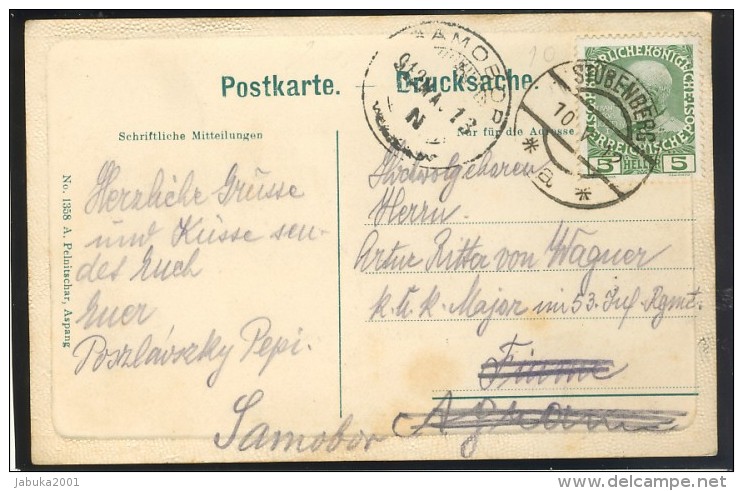 Postkarte. Drucksache.
Schriftliche Mitteilungen
Nur für die Adresse
No. 1358 A. Pelnitschar, Aspang
Herzliche Grüsse
und Küsse sen-
des Euch
Euer
Poszlávszky Pepi.
Hochwolgeboren
Herrn
Artur Ritter von Wagner
k. u. k. Major im 53. Inf. Rgmt.
Fiume
Agram
Samobor
STUBENBERG
10 V
* a *
5 HELLER 5
10
jabuka2001
delcampe.net